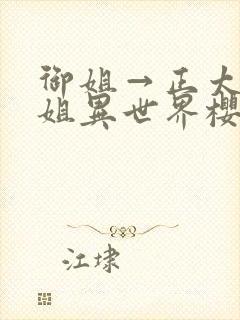 御姐→正大
姐異世界櫻
江埭